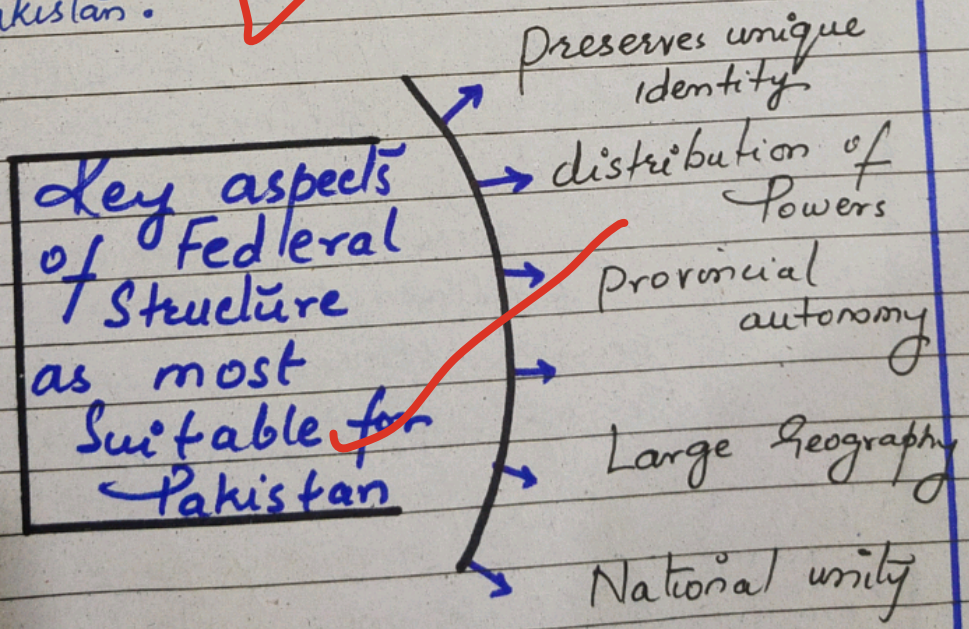 akistan.
Key aspects
of Federal
Structure
as most
Suitable for
Pakistan
Preserves unique
identity
distribution of
Powers
Provincial
autonomy
Large Geography
National unity